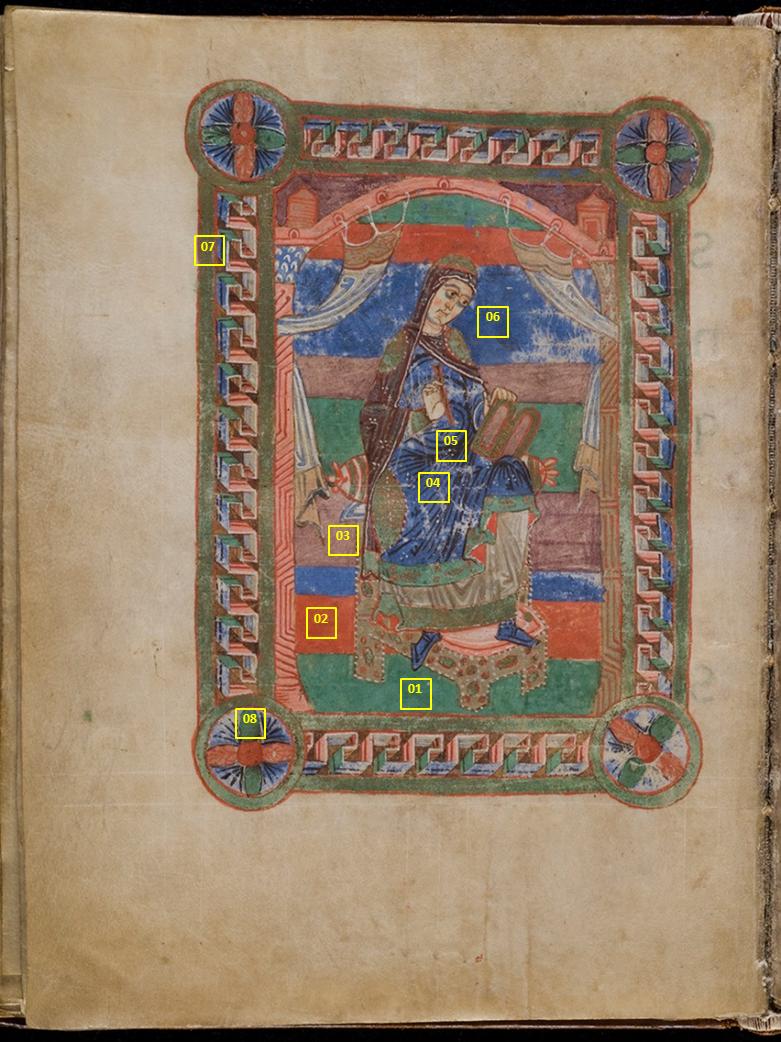 06
07
05
04
03
02
01
08